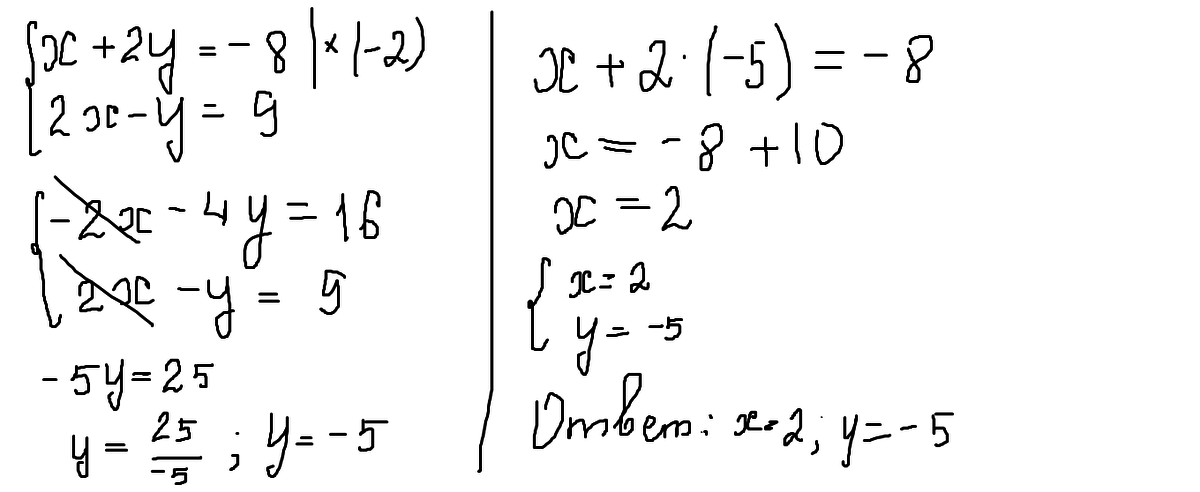 x + 2y = - 8 | × (-2)
2x - y = 9
-2x - 4y = 16
2x - y = 9
- 5y = 25
y = 25/-5 ; y = - 5
x + 2 · (-5) = - 8
x = - 8 + 10
x = 2
x = 2
y = -5
Ответ: x = 2; y = - 5